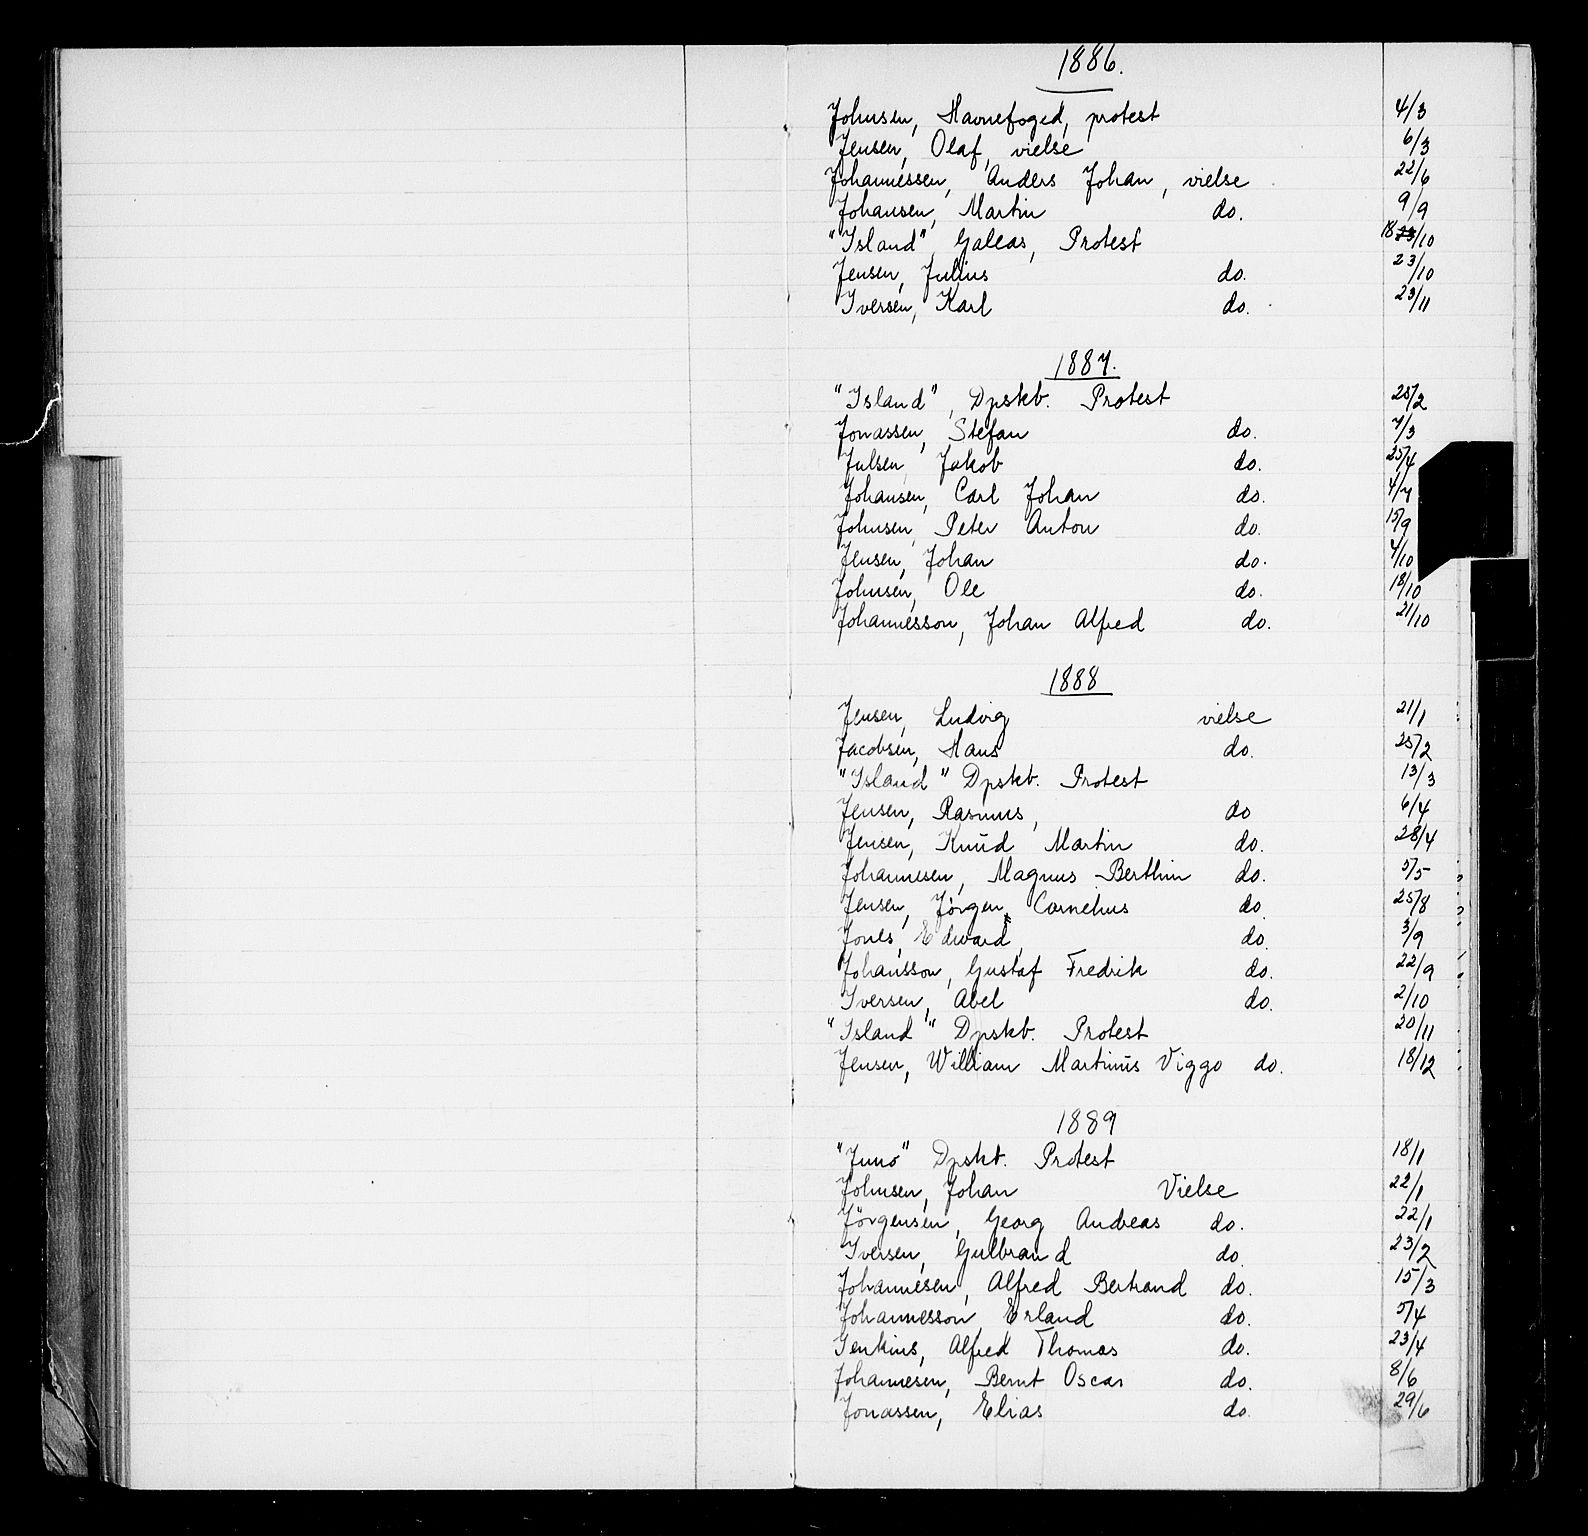 1886.
Johnsen, Havnefoged, protest 4/3
Jensen, Olaf, vielse 6/3
Johannessen, Anders Johan, vielse 22/6
Johansen, Martin do. 9/9
"Island", Galeas, Protest 18/10
Jensen, Julius do. 23/10
Iversen, Karl do. 23/11
1887.
"Island", Dpskb. Protest 25/2
Jonassen, Stefan do. 7/3
Julsen, Jakob do. 25/4
Johansen, Carl Johan do. 4/7
Johnsen, Peter Anton do. 15/9
Jensen, Johan do. 4/10
Johnsen, Ole do. 18/10
Johannesson, Johan Alfred do. 21/10
1888
Jensen, Ludvig vielse 21/1
Jacobsen, Hans do. 25/2
"Island" Dpskb. Protest 13/3
Jensen, Rasmus, do 6/4
Jensen, Knud Martin do. 28/4
Johannesen, Magnus Berthin do. 5/5
Jensen, Jörgen Cornelius do. 25/8
Jones, Edward, do. 3/9
Johansson, Gustaf Fredrik do. 22/9
Iversen, Abel do. 2/10
"Island" Dpskb. Protest 20/11
Jensen, William Martinus Viggo do. 18/12
1889
"Juno" Dpskb. Protest 18/1
Johnsen, Johan Vielse 22/1
Jörgensen, Georg Andreas do. 22/1
Iversen, Gulbrand do. 23/2
Johannesen, Alfred Bertrand do. 15/3
Johannesson, Erland do. 5/4
Jenkins, Alfred Thomas do. 23/4
Johannesen, Bernt Oscar do. 8/6
Jonassen, Elias do. 29/6